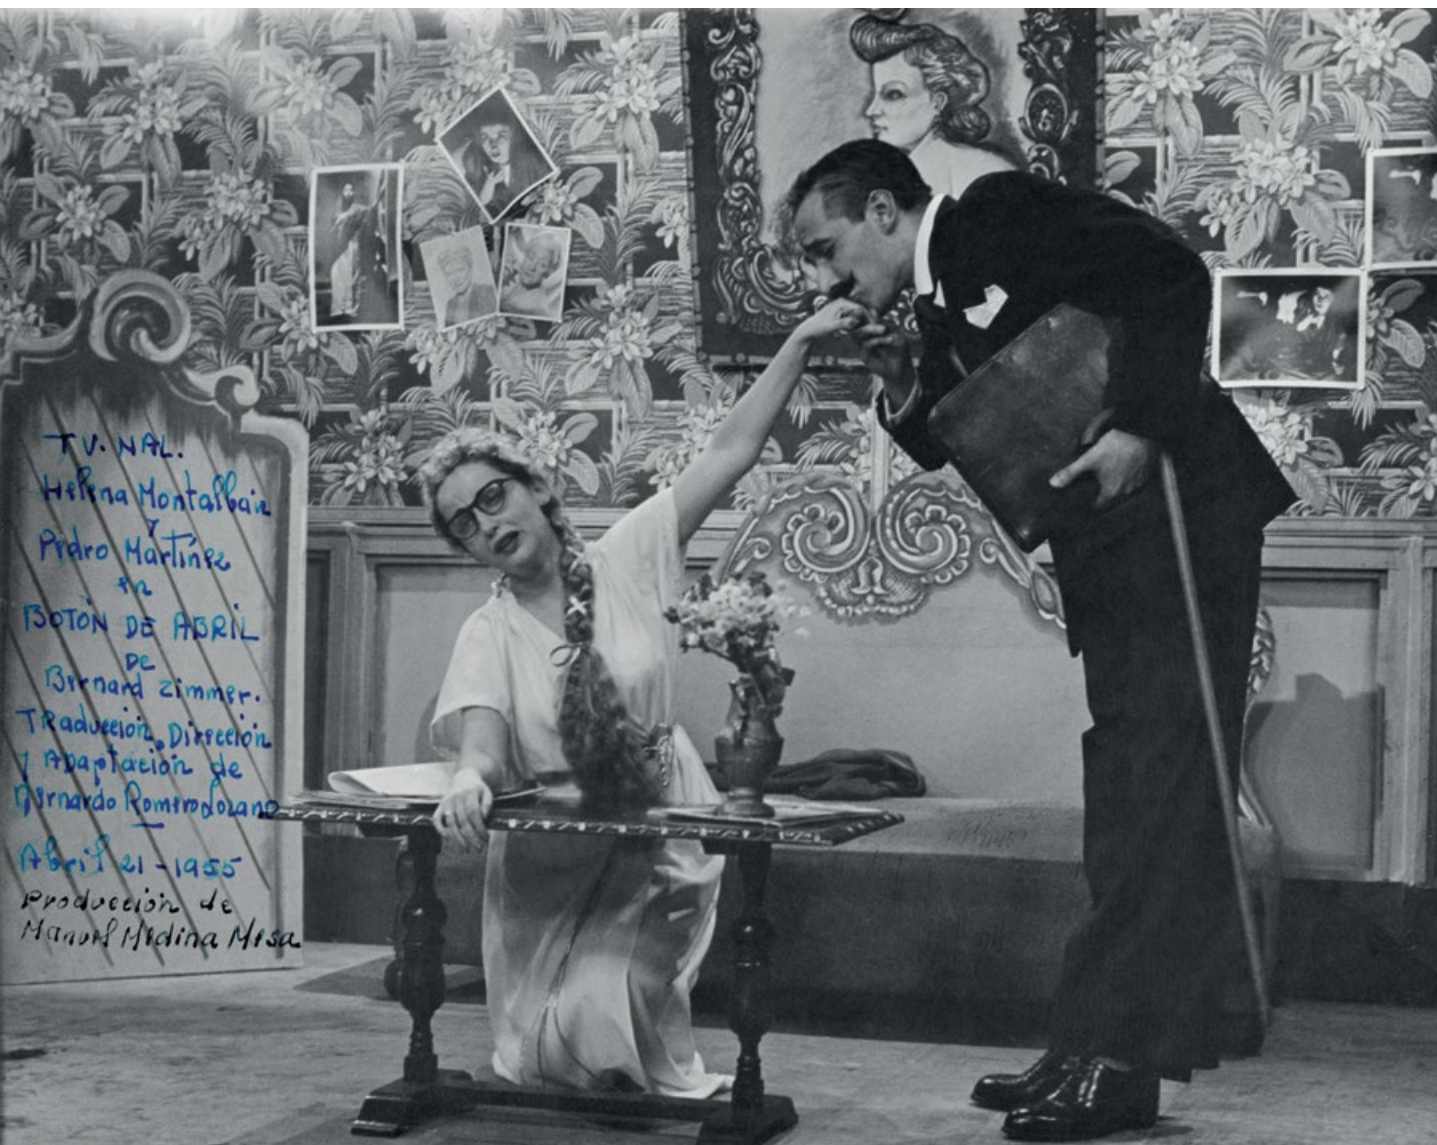 T.V. NAL.
Helena Montalban
y
Pedro Martínez
en
BOTÓN DE ABRIL
DE
Bernard Zimmer.
Traducción, Dirección
y Adaptación de
Bernardo Romero Lozano
Abril 21-1955
Producción de
Manuel Medina Mesa